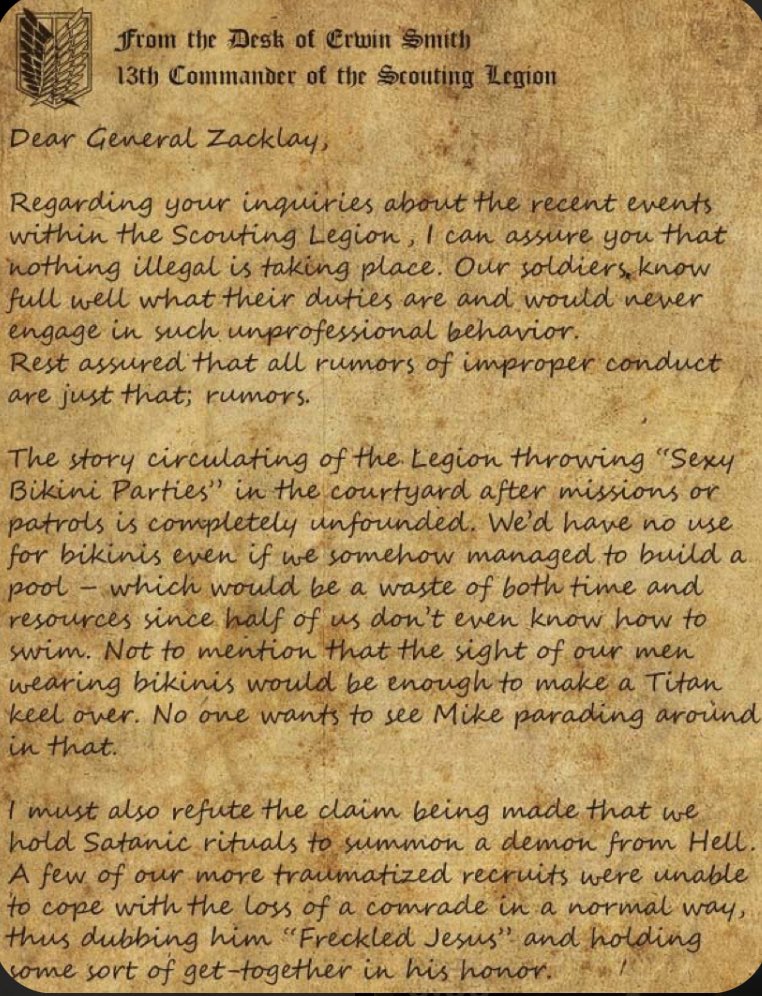 From the Desk of Erwin Smith
13th Commander of the Scouting Legion
Dear General Zacklay,
Regarding your inquiries about the recent events
within the Scouting Legion , I can assure you that
nothing illegal is taking place. Our soldiers know
full well what their duties are and would never
engage in such unprofessional behavior.
Rest assured that all rumors of improper conduct
are just that; rumors.
The story circulating of the Legion throwing “Sexy
Bikini Parties” in the courtyard after missions or
patrols is completely unfounded. We’d have no use
for bikinis even if we somehow managed to build a
pool – which would be a waste of both time and
resources since half of us don’t even know how to
swim. Not to mention that the sight of our men
wearing bikinis would be enough to make a Titan
keel over. No one wants to see Mike parading around
in that.
I must also refute the claim being made that we
hold Satanic rituals to summon a demon from Hell.
A few of our more traumatized recruits were unable
to cope with the loss of a comrade in a normal way,
thus dubbing him “Freckled Jesus” and holding
some sort of get-together in his honor.